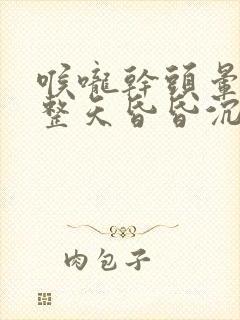 喉嚨幹頭暈
整天昏昏沉
肉包子